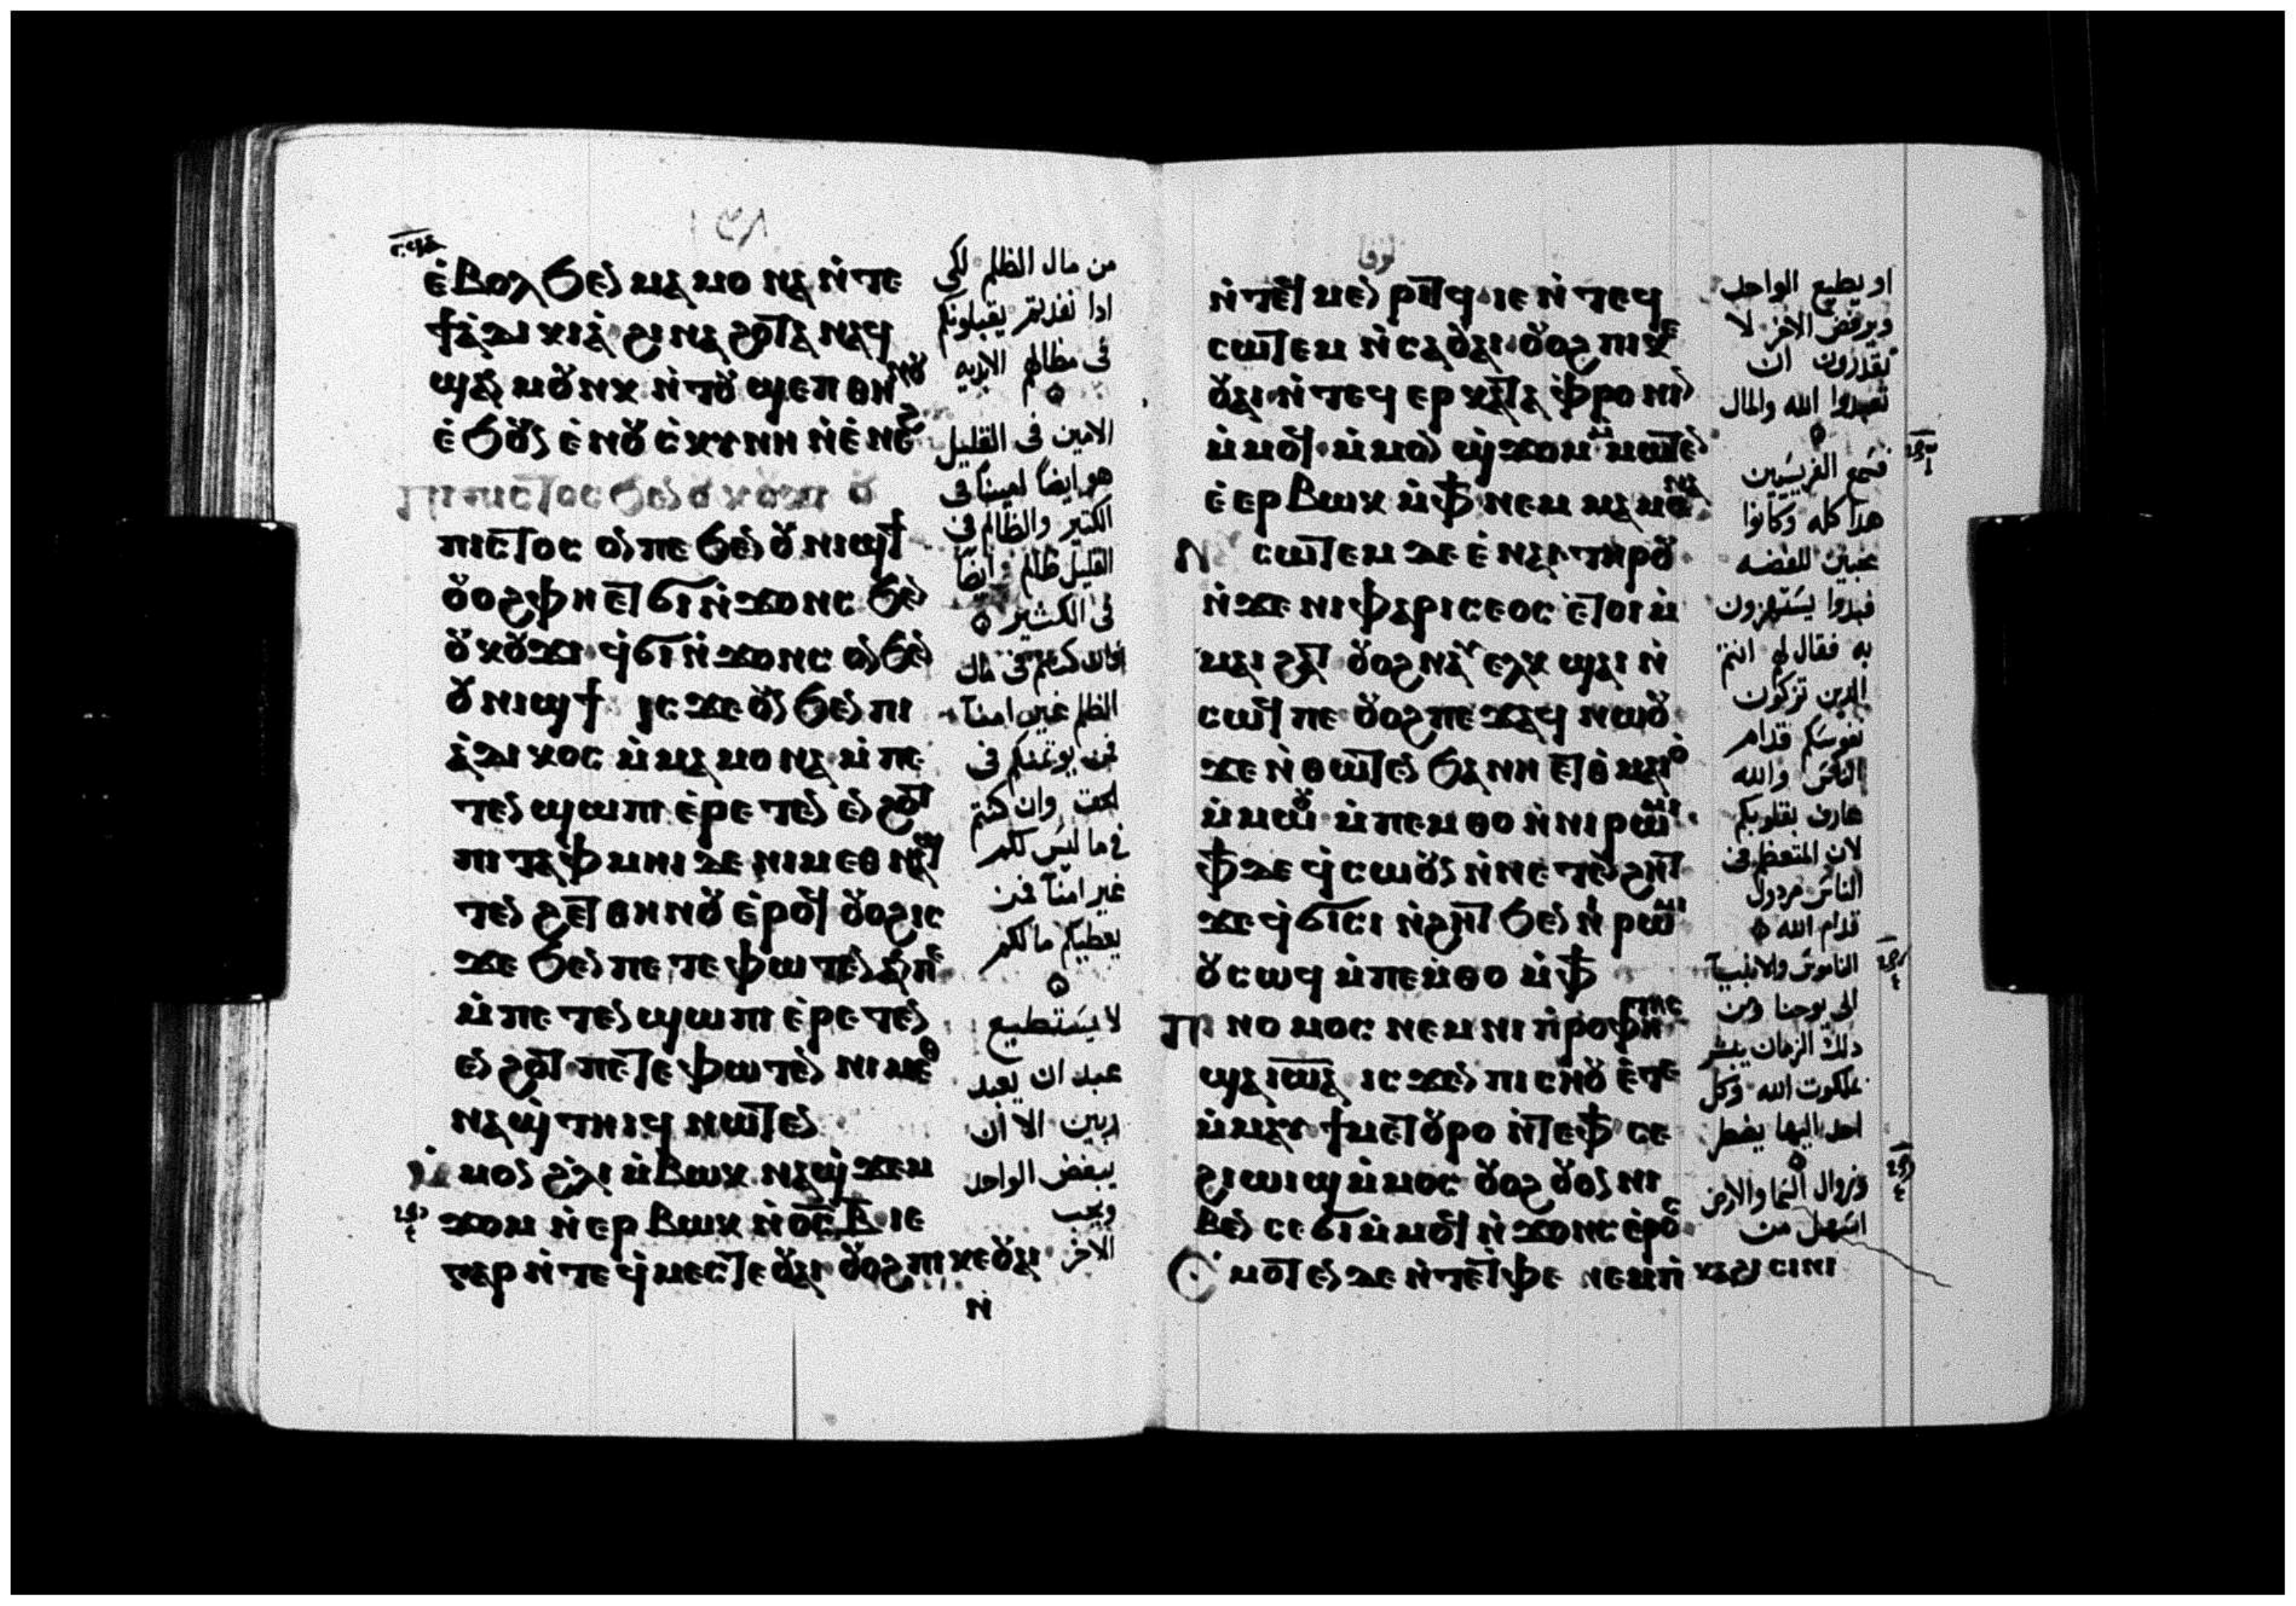 ⲉ̀ⲃⲟⲗ ϧⲉⲛ ⲙⲁⲙⲱⲛⲁ ⲛ̀ⲧⲉ
ϯⲁⲇⲓⲕⲓⲁ ϩⲓⲛⲁ ϩⲟⲧⲁⲛ ⲁϥ
ϣⲁⲛⲙⲟⲩⲛⲕ ⲛ̀ⲧⲟⲩϣⲉⲡ ⲑⲏⲛⲟⲩ
ⲉ̀ϧⲟⲩⲛ ⲉ̀ⲛⲟⲩⲥⲕⲩⲛⲏ ⲛ̀ⲉⲛⲉϩ
ⲡⲓⲡⲓⲥⲧⲟⲥ ϧⲉⲛ ⲟⲩⲕⲟⲩϫⲓ ⲟⲩ
ⲡⲓⲥⲧⲟⲥ ⲟⲛ ⲡⲉ ϧⲉⲛ ⲟⲩⲛⲓϣϯ
ⲟⲩⲟϩ ⲫⲏ ⲉⲧϭⲓ ⲛ̀ϫⲟⲛⲥ ϧⲉⲛ
ⲟⲩⲕⲟⲩϫⲓ ϥ̀ϭⲓ ⲛ̀ϫⲟⲛⲥ ⲟⲛ ϧⲉⲛ
ⲟⲩⲛⲓϣϯ ⲓⲥϫⲉ ⲟⲩⲛ ϧⲉⲛ ⲡⲓ
ⲁⲇⲓⲕⲟⲥ ⲙ̀ⲙⲁⲙⲟⲛⲁ ⲙ̀ⲡⲉ
ⲧⲉⲛϣⲱⲡⲓ ⲉ̀ⲣⲉⲧⲉⲛ ⲉⲛϩⲟⲧ
ⲡⲓⲧⲁⲫⲙⲏⲓ ⲇⲉ ⲛⲓⲙ ⲉⲑⲛⲁ
ⲧⲉⲛϩⲉⲧ ⲑⲏⲛⲟⲩ ⲉ̀ⲣⲟϥ ⲟⲩⲟϩ ⲓⲥ
ϫⲉ ϧⲉⲛ ⲡⲉⲧⲉ ⲫⲱⲧⲉⲛ ⲁⲛ ⲡⲉ
ⲙ̀ⲡⲉⲧⲉⲛϣⲱⲡⲓ ⲉ̀ⲣⲉⲧⲉⲛ
ⲉⲛϩⲟⲧ ⲡⲉⲧⲉ ⲫⲱⲧⲉⲛ ⲛⲓⲙ ⲉⲑ
ⲛⲁϣ̀ⲧⲏⲓϥ ⲛⲱⲧⲉⲛ
ⲙ̀ⲙⲟⲛ ϩ̀ⲗⲓ ⲙ̀ⲃⲱⲕ ⲛⲁϣ̀ϫⲉⲙ
ϫⲟⲙ ⲛ̀ⲉⲣⲃⲱⲕ ⲛ̀ⲟ̅ⲥ̅ ⲃ̅ ⲓⲉ
ⲅⲁⲣ ⲛ̀ⲧⲉϥ̀ⲙⲉⲥⲧⲉ ⲟⲩⲁⲓ ⲟⲩⲟϩ ⲡⲓⲕⲉⲟⲩⲁⲓ
ⲛ̀
من مال الظلم لكي
ادا نفدتم يقبلونكم
فى مظالهم الابديه
الامين فى القليل
هو ايضاً امينا فى
الكتير والظالم فى
القليل ظالم ايضاً
فى الكثير
فان كنتم فى مال
الظلم غير امنآ
فمن يوتمنكم فى
الحق وان كنتم
في ما ليس لكم
غير امنآ فمن
يعطيكم مالكم
لا يستطيع
عبد ان يعبد
ربين الا ان
يبغض الواحد
ويحب
الاخر
لوقا
ⲛ̀ⲧⲉϥⲙⲉⲛⲣⲓⲧϥ ⲓⲉ ⲛ̀ⲧⲉϥ
ⲥⲱⲧⲉⲙ ⲛ̀ⲥⲁ ⲟⲩⲁⲓ ⲟⲩⲟϩ ⲡⲓⲕⲉ
ⲟⲩⲁⲓ ⲛ̀ⲧⲉϥⲉⲣⲕⲁⲧⲁⲫⲣⲟⲛⲓⲛ
ⲙ̀ⲙⲟϥ ⲙ̀ⲙⲟⲛ ϣ̀ϫⲟⲙ ⲙ̀ⲙⲱⲧⲉⲛ
ⲉ̀ⲉⲣⲃⲱⲕ ⲙ̀ⲫϯ ⲛⲉⲙ ⲙⲁⲙⲟⲛⲁ
ⲛⲁⲩⲥⲱⲧⲉⲙ ⲇⲉ ⲉ̀ⲛⲁⲓ ⲧⲏⲣⲟⲩ
ⲛ̀ϫⲉ ⲛⲓⲫⲁⲣⲓⲥⲉⲟⲥ ⲉⲧⲟⲓ ⲙ̀
ⲙⲁⲓϩⲁⲧ ⲟⲩⲟϩ ⲛⲁⲩⲉⲗⲕϣⲁⲓ ⲛ̀
ⲥⲱϥ ⲡⲉ ⲟⲩⲟϩ ⲡⲉϫⲁϥ ⲛⲱⲟⲩ
ϫⲉ ⲛ̀ⲑⲱⲧⲉⲛ ϧⲁ ⲛⲏ ⲉⲧⲑⲙⲁⲓⲟ
ⲙ̀ⲙⲱⲟⲩ ⲙ̀ⲡⲉⲙⲑⲟ ⲛ̀ⲛⲓⲣⲱⲙⲓ
ⲫϯ ⲇⲉ ϥ̀ⲥⲱⲟⲩⲛ ⲛ̀ⲛⲉⲧⲉⲛϩⲏⲧ
ϫⲉ ϥ̀ϭⲓⲥⲓ ⲛ̀ϩⲏⲧ ϧⲉⲛ ⲛⲓⲣⲱⲙⲓ
ⲟⲩⲥⲱϥ ⲙ̀ⲡⲉⲙ̀ⲑⲟ ⲙ̀ⲫϯ
ⲡⲓⲛⲟⲙⲟⲥ ⲛⲉⲙ ⲛⲓⲡ̀ⲣⲟⲫⲏⲧⲏⲥ
ϣⲁ ⲓⲱⲁ ⲓⲥϫⲉⲛ ⲡⲓⲥⲏⲟⲩ ⲉ̀ⲧⲉ
ⲙ̀ⲙⲁⲩ ϯⲙⲉⲧⲟⲩⲣⲟ ⲛ̀ⲧⲉ ⲫϯ ⲥⲉ
ϩⲓⲱⲓϣ ⲙ̀ⲙⲟⲥ ⲟⲩⲟϩ ⲟⲩⲟⲛ ⲛⲓ
ⲃⲉⲛ ⲥⲉϭⲓ ⲙ̀ⲙⲟϥ ⲛ̀ϫⲟⲛⲥ ⲉ̀ⲣⲟⲥ
ⲥ̀ⲙⲟⲧⲉⲛ ⲇⲉ ⲛ̀ⲧⲉ ⲧ̀ⲫⲉ ⲛⲉⲙ ⲡ̀ⲕⲁϩⲓ ⲥⲓⲛⲓ
او يطيع الواحد
ويرفض الاخر لا
تقدرون ان
تعبدوا الله والمال
فسمع الفريسيين
هدا كله وكانوا
محبين للفضه
فبدوا يستهزون
به فقال لهم انتم
الدين تزكون
نفوسكم قدام
الناس والله
عارف بقلوبكم
لان المتعظم فى
الناس مردول
قدام الله
الناموس والانبيآ
الى يوحنا ومن
دلك الزمان يبشر
بملكوت الله وكل
احد اليها يضطر
وزوال السما والارض
اسهل من